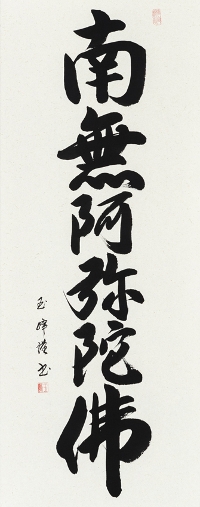 南無阿弥陀佛